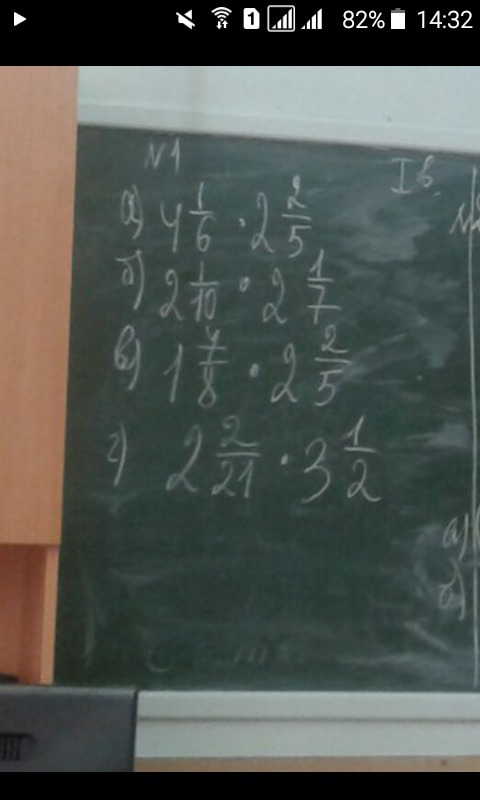 1 82% 14:32
№1
I в.
а) 4 1/6 · 2 2/5
б) 2 1/10 · 2 1/7
в) 1 7/8 · 2 2/5
г) 2 2/21 · 3 1/2
а)
б)